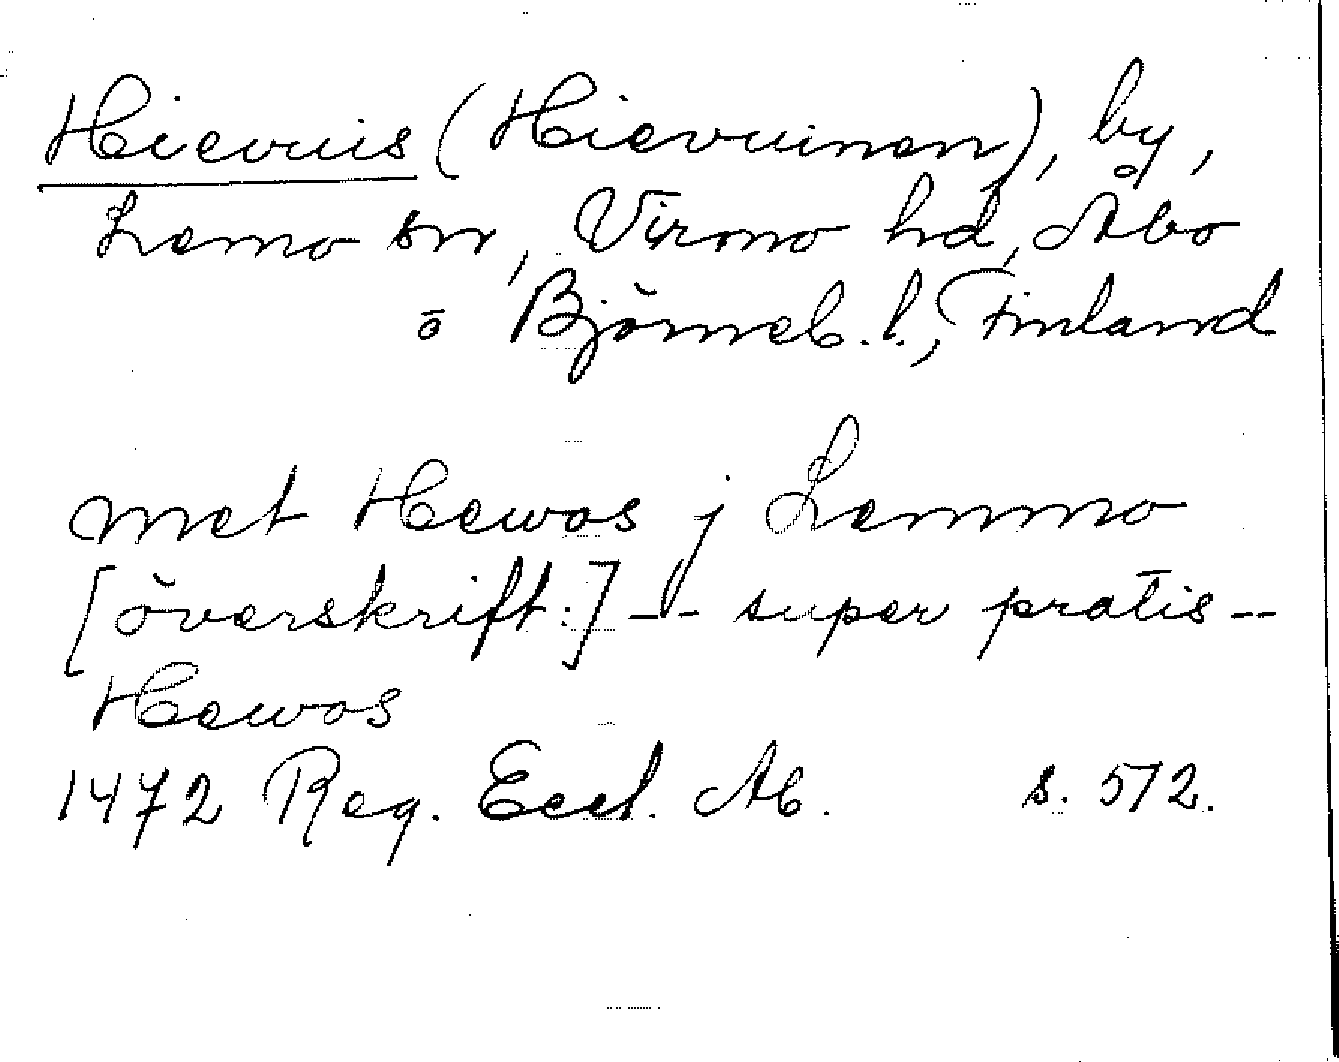 Hievuis (Hievuinen), by,
Lemo sn, Virmo hd, Åbo
o Björneb. l., Finland
met Hewos j Lemmo
[överskrift:] -- super pratis --
Hewos
1472 Reg. Eccl. Ab. s. 572.